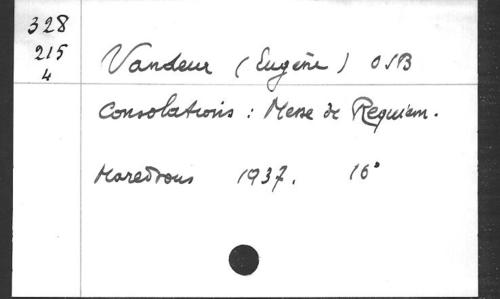 328
215
4
Vandeur (Eugène) OSB
Consolations : Messe de Requiem.
Maredsous 1937. 16°